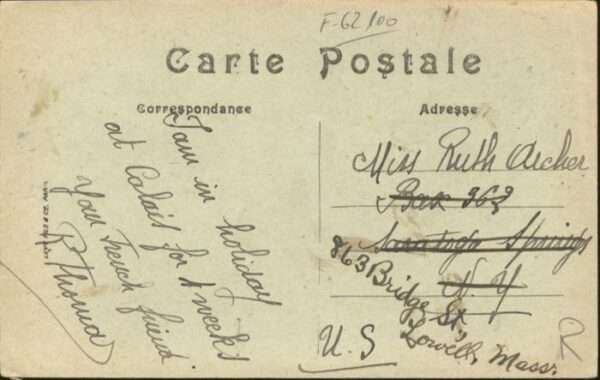 F-62/100
Carte Postale
Correspondance
Adresse
I am in holiday
at Calais for 4 weeks
your French friend
R Thomas
Miss Ruth Archer
Box 363
Saratoga Springs
N. Y
863 Bridge St.,
Lowell, Mass.
U. S